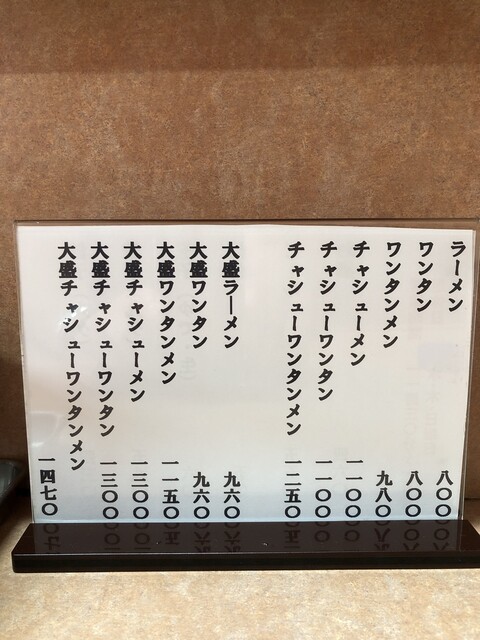 ラーメン 八〇〇
ワンタン 八〇〇
ワンタンメン 九八〇
チャシューメン 一一〇〇
チャシューワンタン 一一〇〇
チャシューワンタンメン 一二五〇
大盛ラーメン 九六〇
大盛ワンタン 九六〇
大盛ワンタンメン 一一五〇
大盛チャシューメン 一三〇〇
大盛チャシューワンタン 一三〇〇
大盛チャシューワンタンメン 一四七〇